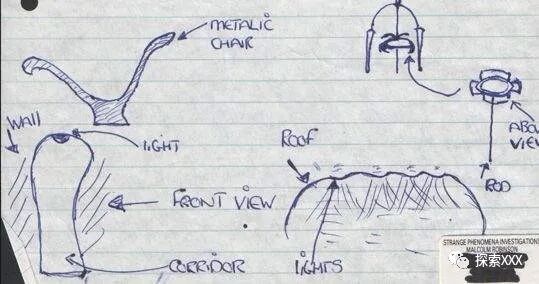 METALIC
CHAIR
WALL
LIGHT
ROOF
ABO
VIEW
FRONT VIEW
ROD
CORRIDOR
LIGHTS
STRANGE PHENOMENA INVESTIGATIONS
MALCOLM ROBINSON
探索XXX